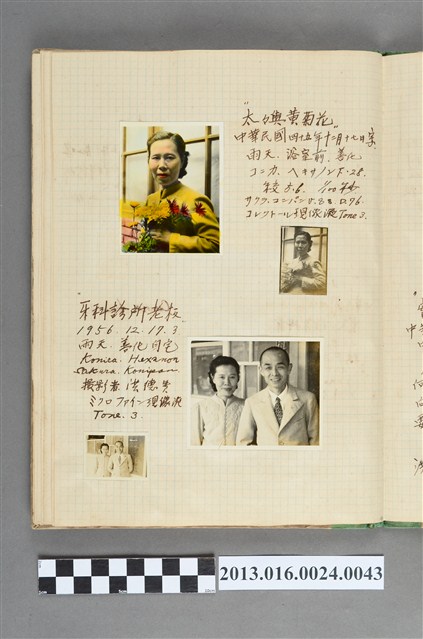 "太々與黃菊花"
中華民國四十五年十二月十七日寫
雨天. 浴室前. 善化
コニカ. ヘキサノンF.28.
絞5.6. 1/100秒
サクラ.コンパン S.S.S. 0.96.
コレクトール現像液 Tone 3.
"牙科診所老板"
1956. 12. 17. 3.
雨天. 善化自宅
Konica. Hexanon
Sakura. Konipan
撮影者 洪德貴
ミクロファイン現像液
Tone. 3.
2013.016.0024.0043